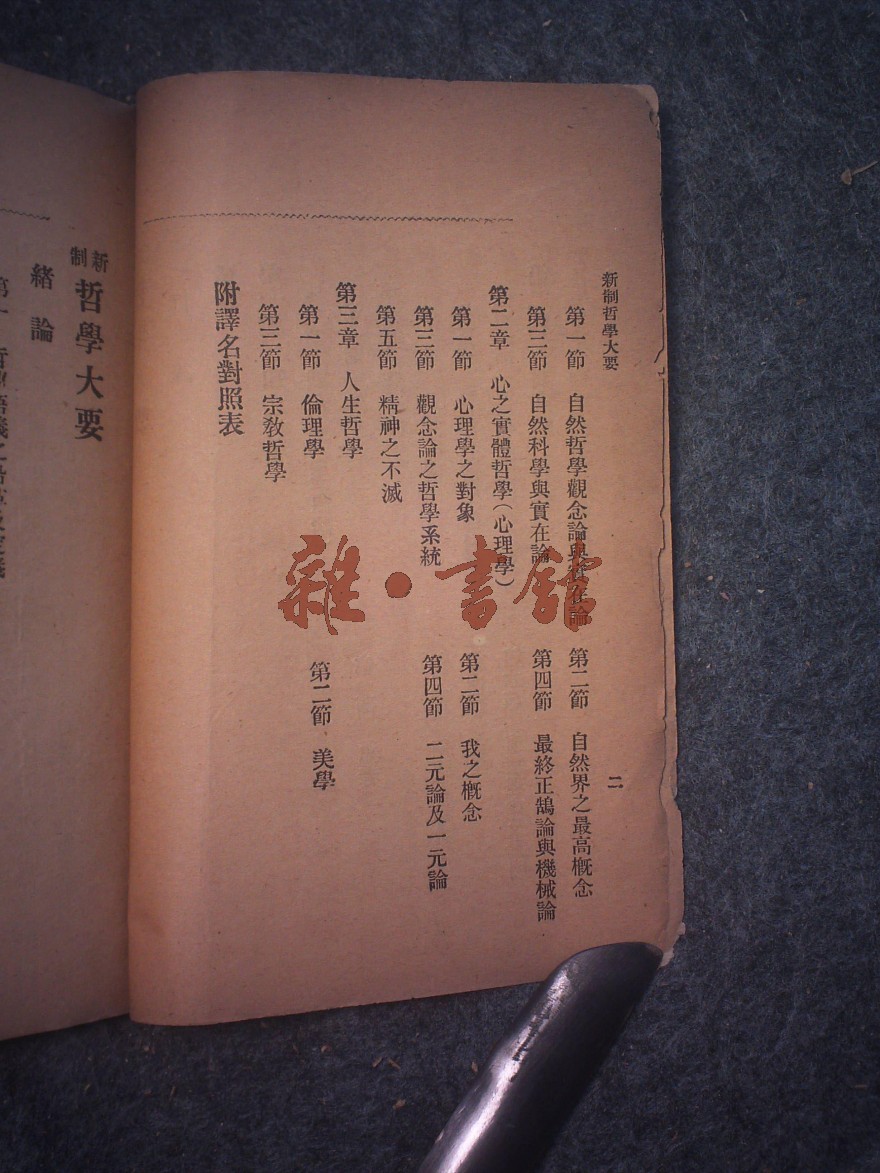 新制哲學大要
二
第一節 自然哲學觀念論與實在論 第二節 自然界之最高概念
第三節 自然科學與實在論 第四節 最終正鵠論與機械論
第二章 心之實體哲學(心理學)
第一節 心理學之對象 第二節 我之概念
第三節 觀念論之哲學系統 第四節 二元論及一元論
第五節 精神之不滅
第三章 人生哲學
第一節 倫理學 第二節 美學
第三節 宗教哲學
附譯名對照表
新制哲學大要
緒論
雜·書館